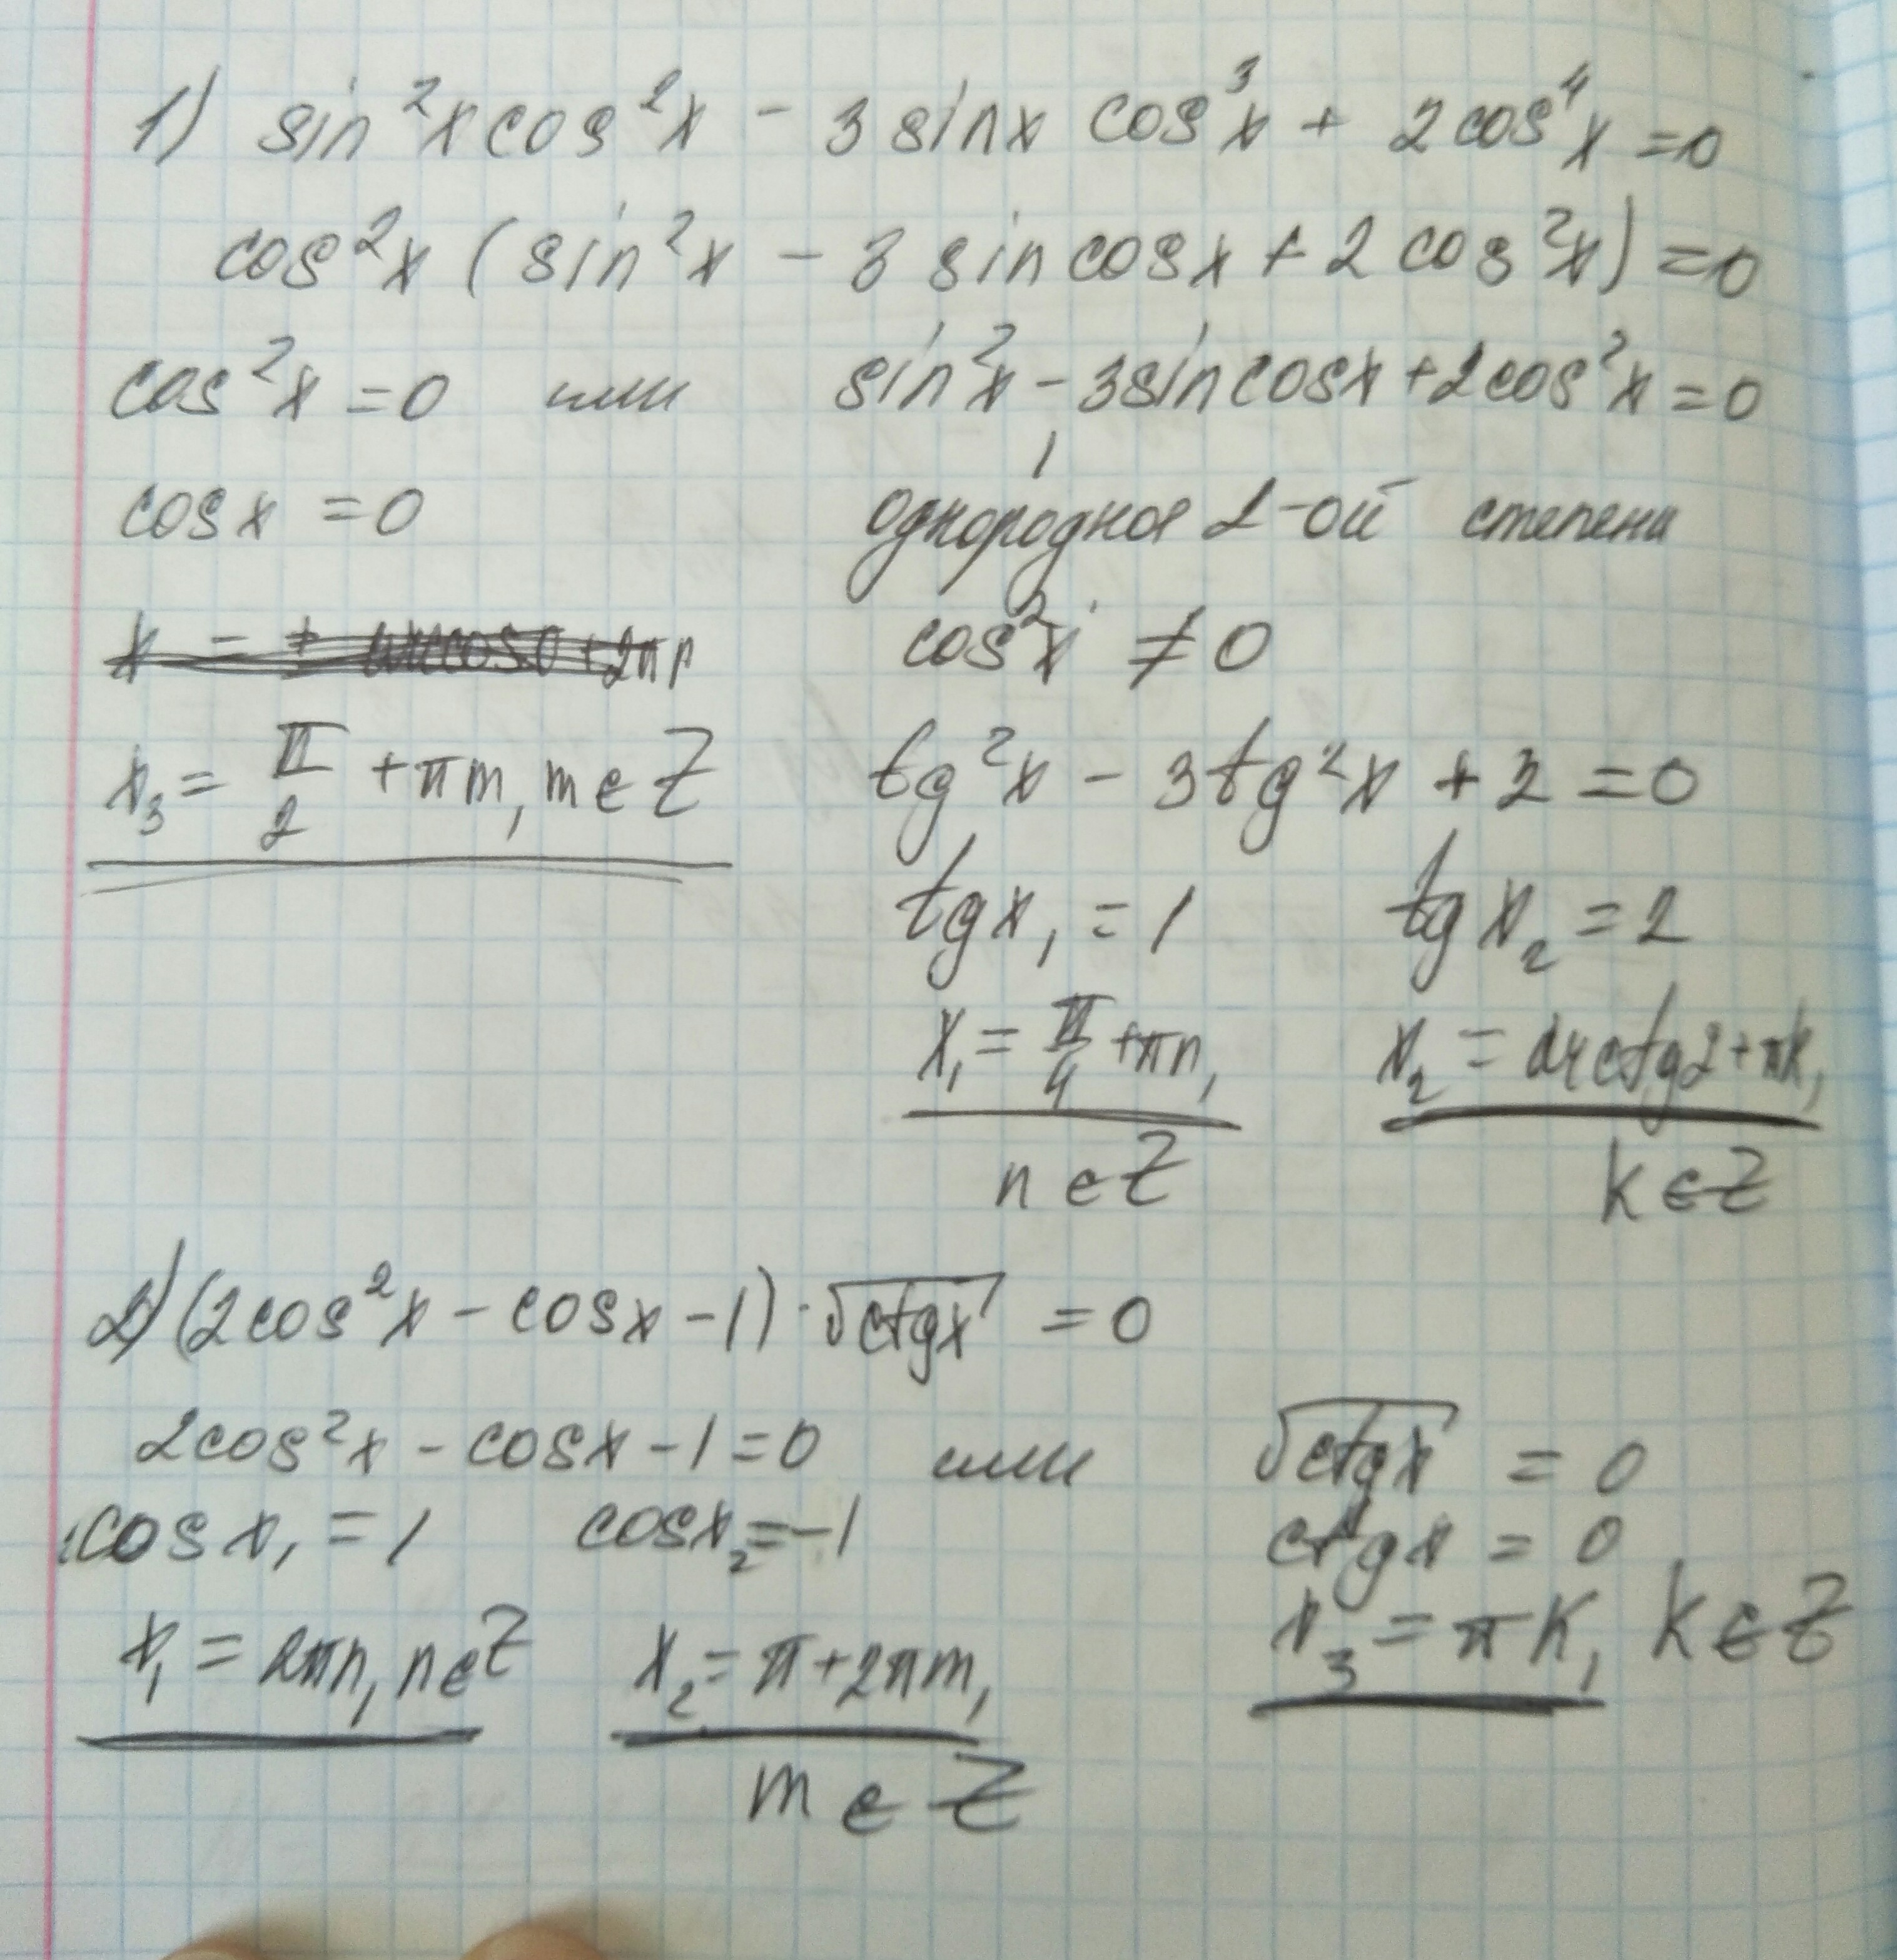 1) sin²x cos²x - 3 sinx cos³x + 2cos⁴x = 0
cos²x (sin²x - 3 sin cosx + 2 cos²x) = 0
cos²x = 0 или sin²x - 3sin cosx + 2cos²x = 0
cosx = 0 однородное 2-ой степени
x = ± arccos0 + 2πn cos²x ≠ 0
x₃ = π/2 + πm, m∈Z tg²x - 3tg²x + 2 = 0
tgx₁ = 1 tgx₂ = 2
x₁ = π/4 + πn, x₂ = arctg2 + πk,
n∈Z k∈Z
2) (2cos²x - cosx - 1) · √ctgx = 0
2cos²x - cosx - 1 = 0 или √ctgx = 0
cosx₁ = 1 cosx₂ = -1 ctgx = 0
x₁ = 2πn, n∈Z x₂ = π + 2πm, x₃ = πk, k∈Z
m∈Z